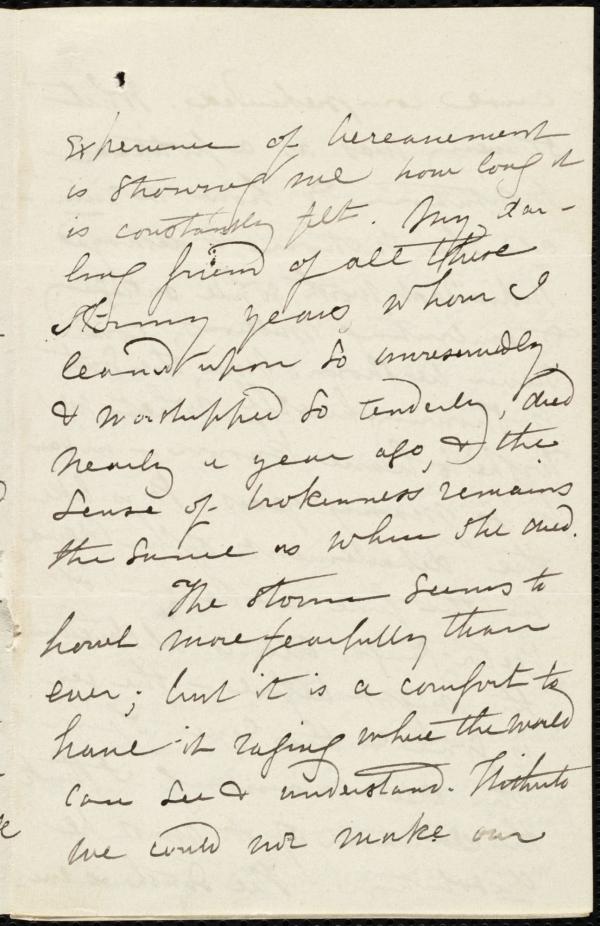 experience of bereavement
is showing me how long it
is constantly felt. My dar-
ling friend of all these
stormy years, whom I
leaned upon so unreservedly,
& worshipped so tenderly, died
nearly a year ago, & the
sense of brokenness remains
the same as when she died.
The storm seems to
howl more fearfully than
ever; but it is a comfort to
have it raging where the world
can see & understand. Hitherto
we could not make our